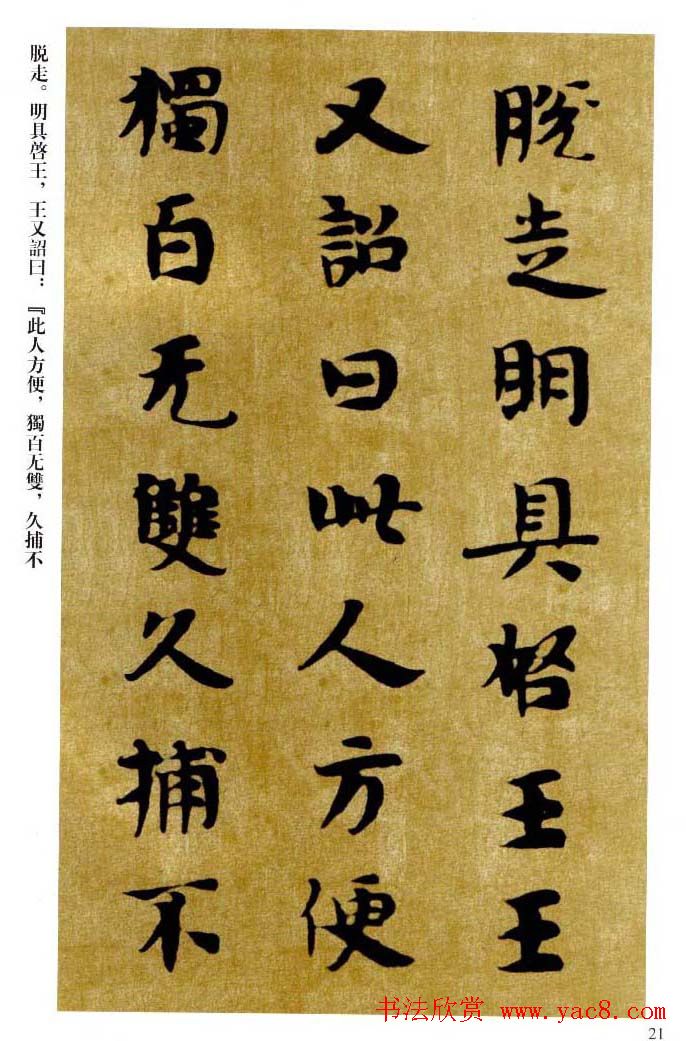 脱走明具啓王王
又詔曰此人方便
獨百无雙久捕不
脱走。明具啓王，王又詔曰：『此人方便，獨百无雙，久捕不
书法欣赏 www.yac8.com
21